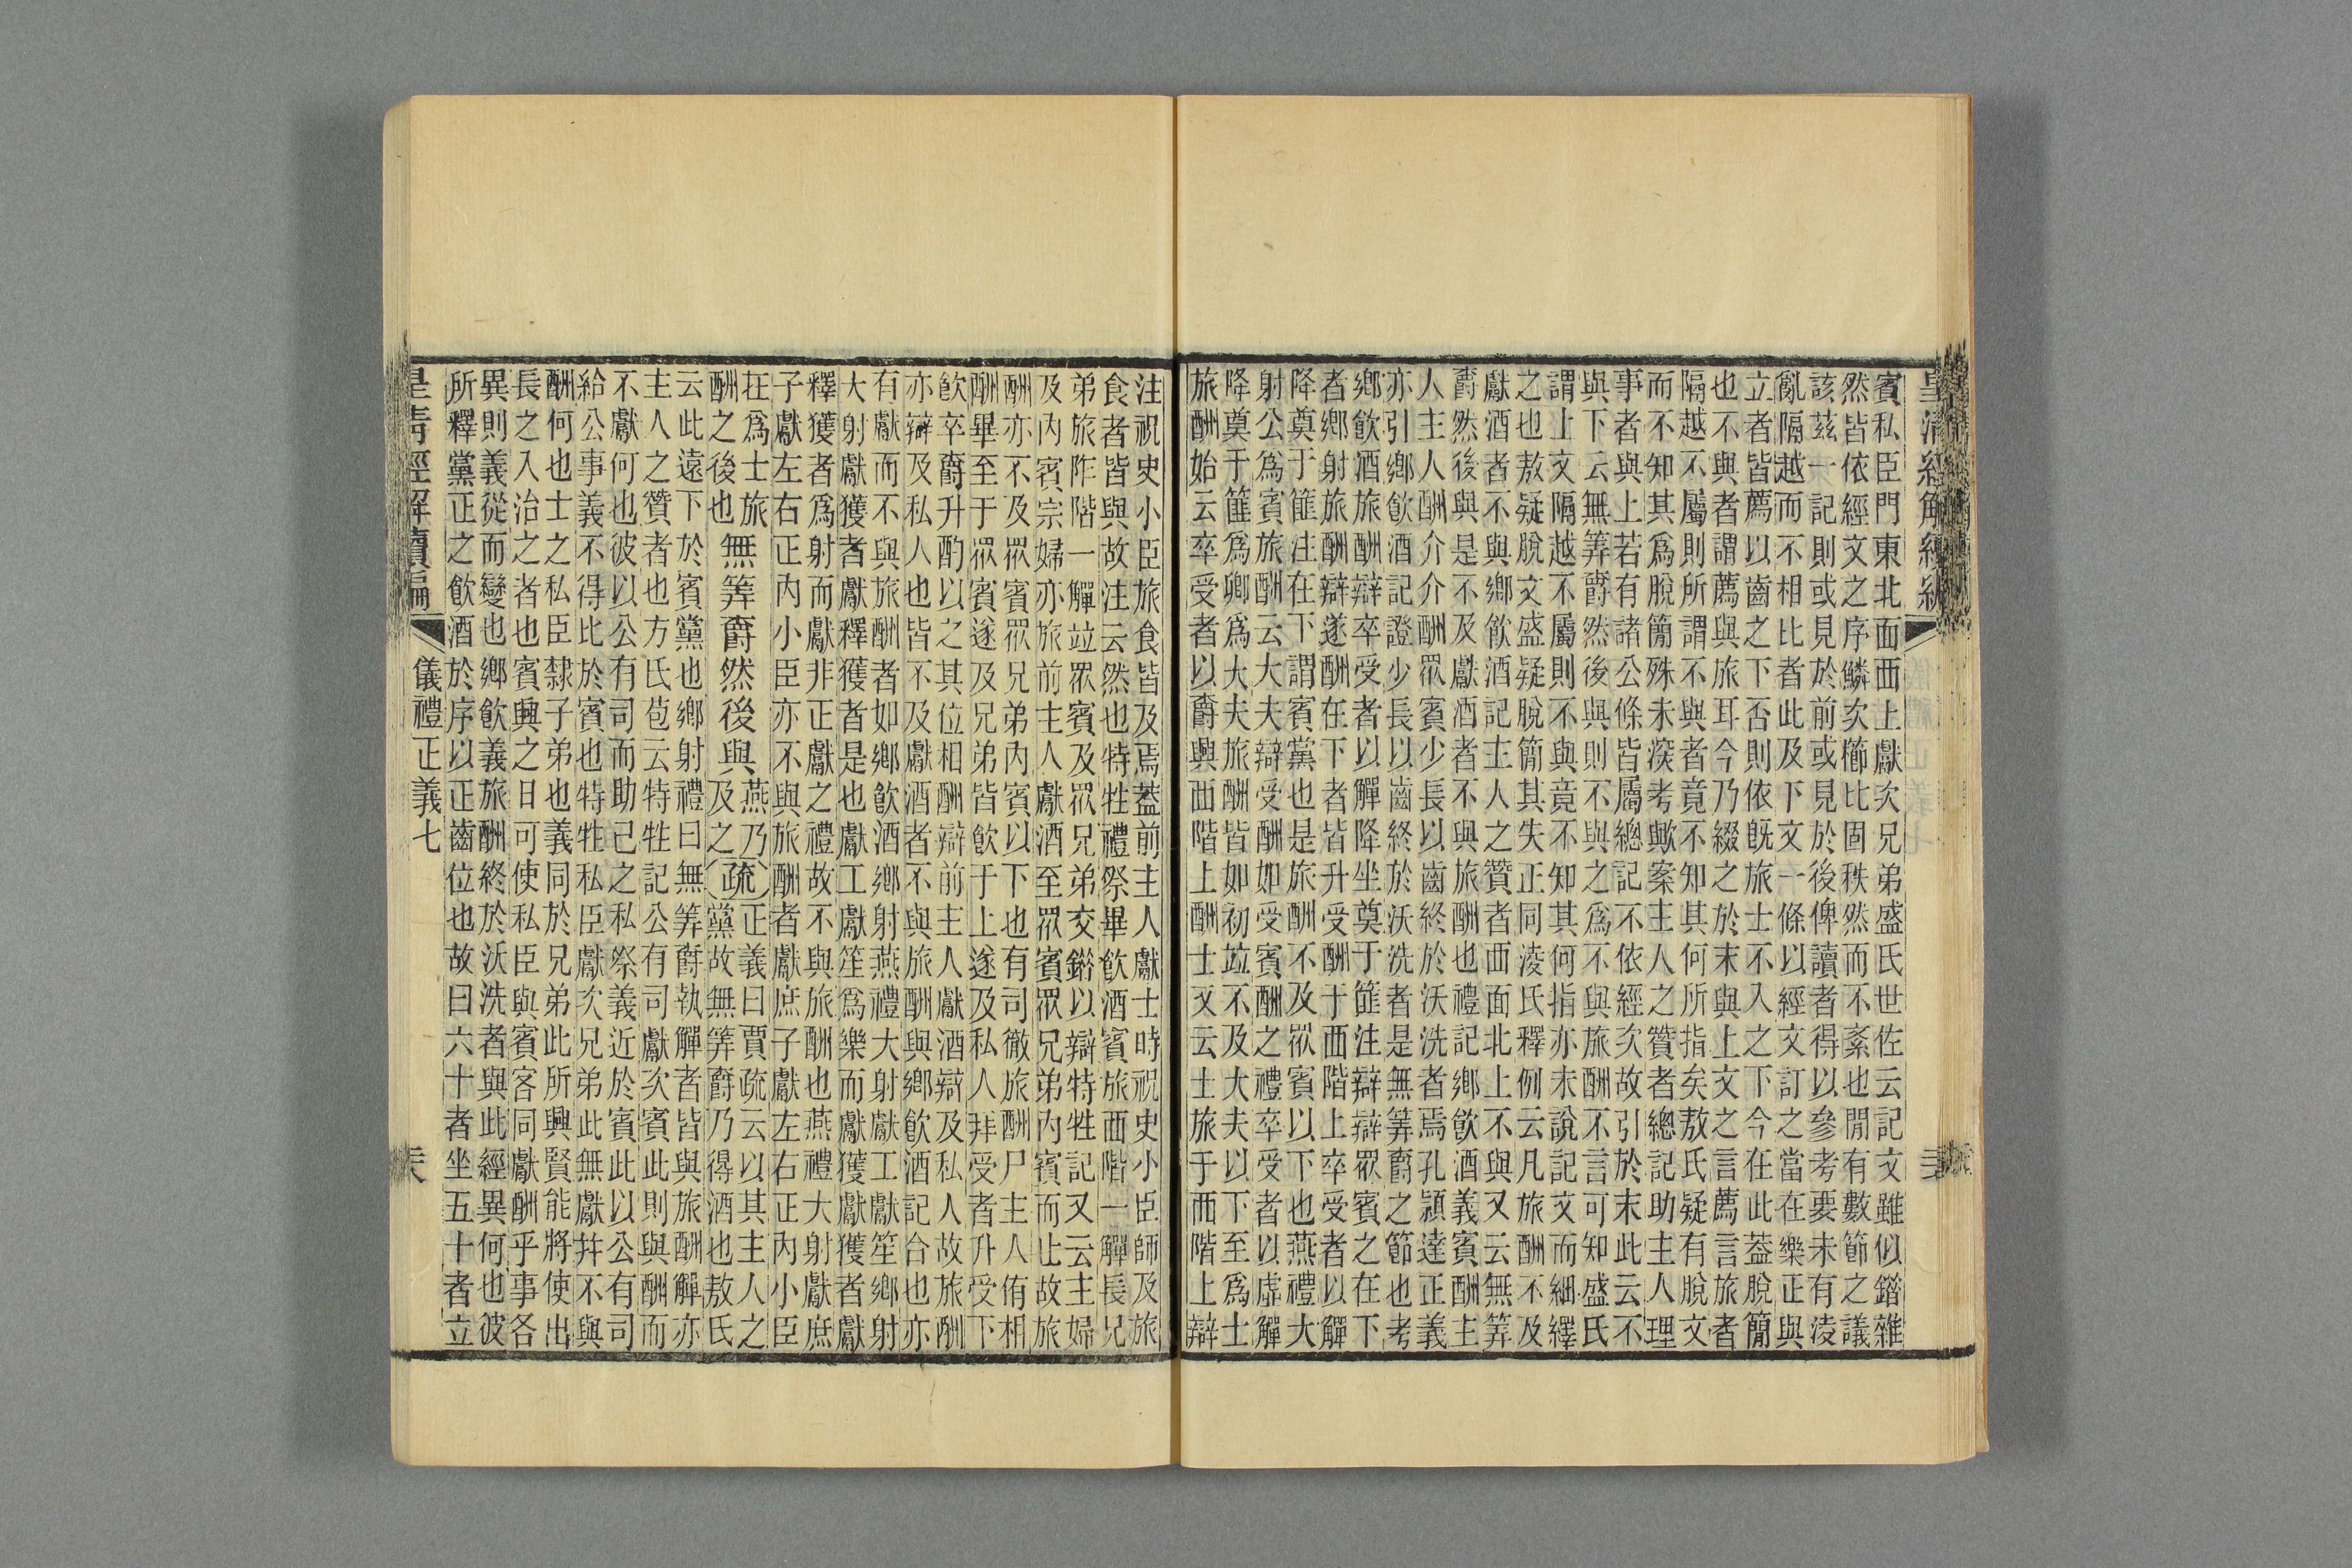 賓私臣門東北面西上獻次兄弟盛氏世佐云記文雖似錯雜
然皆依經文之序鱗次櫛比固秩然而不紊也閒有數節之議
該茲一記則或見於前或見於後俾讀者得以參考要未有淩
亂隔越而不相比者此及下文一條以經文訂之當在樂正與
立者皆薦以齒之下否則依旣旅士不入之下今在此葢脫簡
也不與者謂薦與旅耳今乃綴之於末與上文之言薦言旅者
隔越不屬則所謂不與者竟不知其何所指矣敖氏疑有脫文
而不知其爲脫簡殊未深考歟案主人之贊者總記助主人理
事者與上若有諸公條皆屬總記不依經次故引於末此云不
與下云無筭爵然後與則不與之爲不與旅酬不言可知盛氏
謂上文隔越不屬則不與竟不知其何指亦未說記文而細繹
之也敖疑脫文盛疑脫簡其失正同淩氏釋例云凡旅酬不及
獻酒者不與鄉飮酒記主人之贊者西面北上不與又云無筭
爵然後與是不及獻酒者不與旅酬也禮記鄉飮酒義賓酬主
人主人酬介介酬眾賓少長以齒終於沃洗者焉孔潁達正義
亦引鄉飮酒記證少長以齒終於沃洗者是無筭爵之節也考
鄉飮酒旅酬辯卒受者以觶降坐奠于篚注辯辯眾賓之在下
者鄉射旅酬辯遂酬在下者皆升受酬于西階上卒受者以觶
降奠于篚注在下謂賓黨也是旅酬不及眾賓以下也燕禮大
射公爲賓旅酬云大夫辯受酬如受賓酬之禮卒受者以虛觶
降奠于篚爲卿爲大夫旅酬皆如初竝不及大夫以下至爲士
旅酬始云卒受者以爵興西階上酬士又云士旅于西階上辯
注祝史小臣旅食皆及焉葢前主人獻士時祝史小臣師及旅
食者皆與故注云然也特牲禮祭畢飮酒賓旅西階一觶長兄
弟旅阼階一觶竝眾賓及眾兄弟交錯以辯特牲記又云主婦
及內賓宗婦亦旅前主人獻酒至眾賓眾兄弟內賓而止故旅
酬亦不及眾賓眾兄弟內賓以下也有司徹旅酬尸主人侑相
酬畢至于眾賓遂及兄弟皆飮于上遂及私人拜受者升受下
飮卒爵升酌以之其位相酬辯前主人獻酒辯及私人故旅酬
亦辯及私人也皆不及獻酒者不與旅酬與鄉飮酒記合也亦
有獻而不與旅酬者如鄉飮酒鄉射燕禮大射獻工獻笙鄉射
大射獻獲者獻釋獲者是也獻工獻笙爲樂而獻獲獻獲者獻
釋獲者爲射而獻非正獻之禮故不與旅酬也燕禮大射獻庶
子獻左右正內小臣亦不與旅酬者獻庶子獻左右正內小臣
在爲士旅
酬之後也
無筭爵然後與
燕乃
及之
疏
正義曰賈疏云以其主人之
黨故無筭爵乃得酒也敖氏
云此遠下於賓黨也鄉射禮曰無筭爵執觶者皆與旅酬觶亦
主人之贊者也方氏苞云特牲記公有司獻次賓此則與酬而
不獻何也彼以公有司而助己之私祭義近於賓此以公有司
給公事義不得比於賓也特牲私臣獻次兄弟此無獻幷不與
酬何也士之私臣隸子弟也義同於兄弟此所興賢能將使出
長之入治之者也賓興之日可使私臣與賓客同獻酬乎事各
異則義從而變也鄉飮義旅酬終於沃洗者與此經異何也彼
所釋黨正之飮酒於序以正齒位也故曰六十者坐五十者立
皇淸經解續編
儀禮正義七